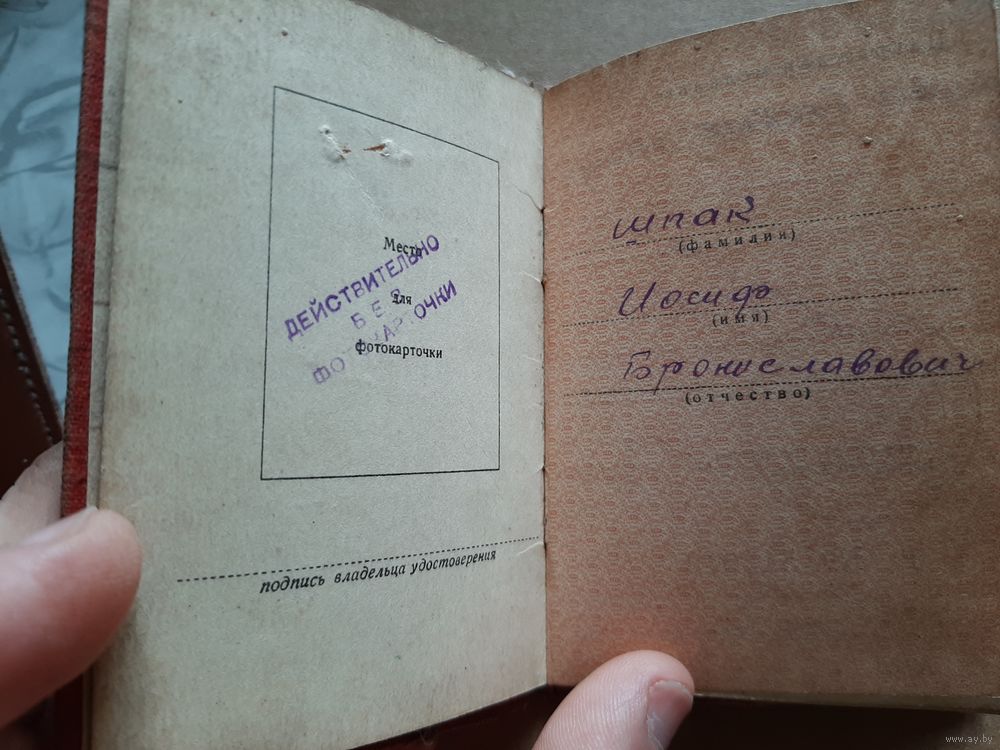 Место
для
фотокарточки
ДЕЙСТВИТЕЛЬНО
БЕЗ
ФОТОКАРТОЧКИ
подпись владельца удостоверения
Шпак
(фамилия)
Иосиф
(имя)
Брониславович
(отчество)
www.ay.by